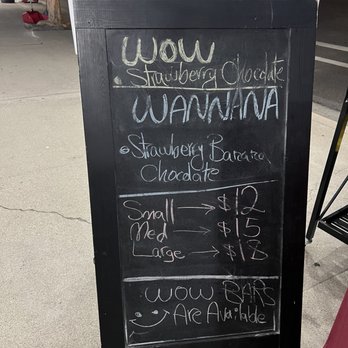 WOW
Strawberry Chocolate
WANNANA
Strawberry Banana
Chocolate
Small → $12
Med → $15
Large → $18
WOW BARS
Are Available